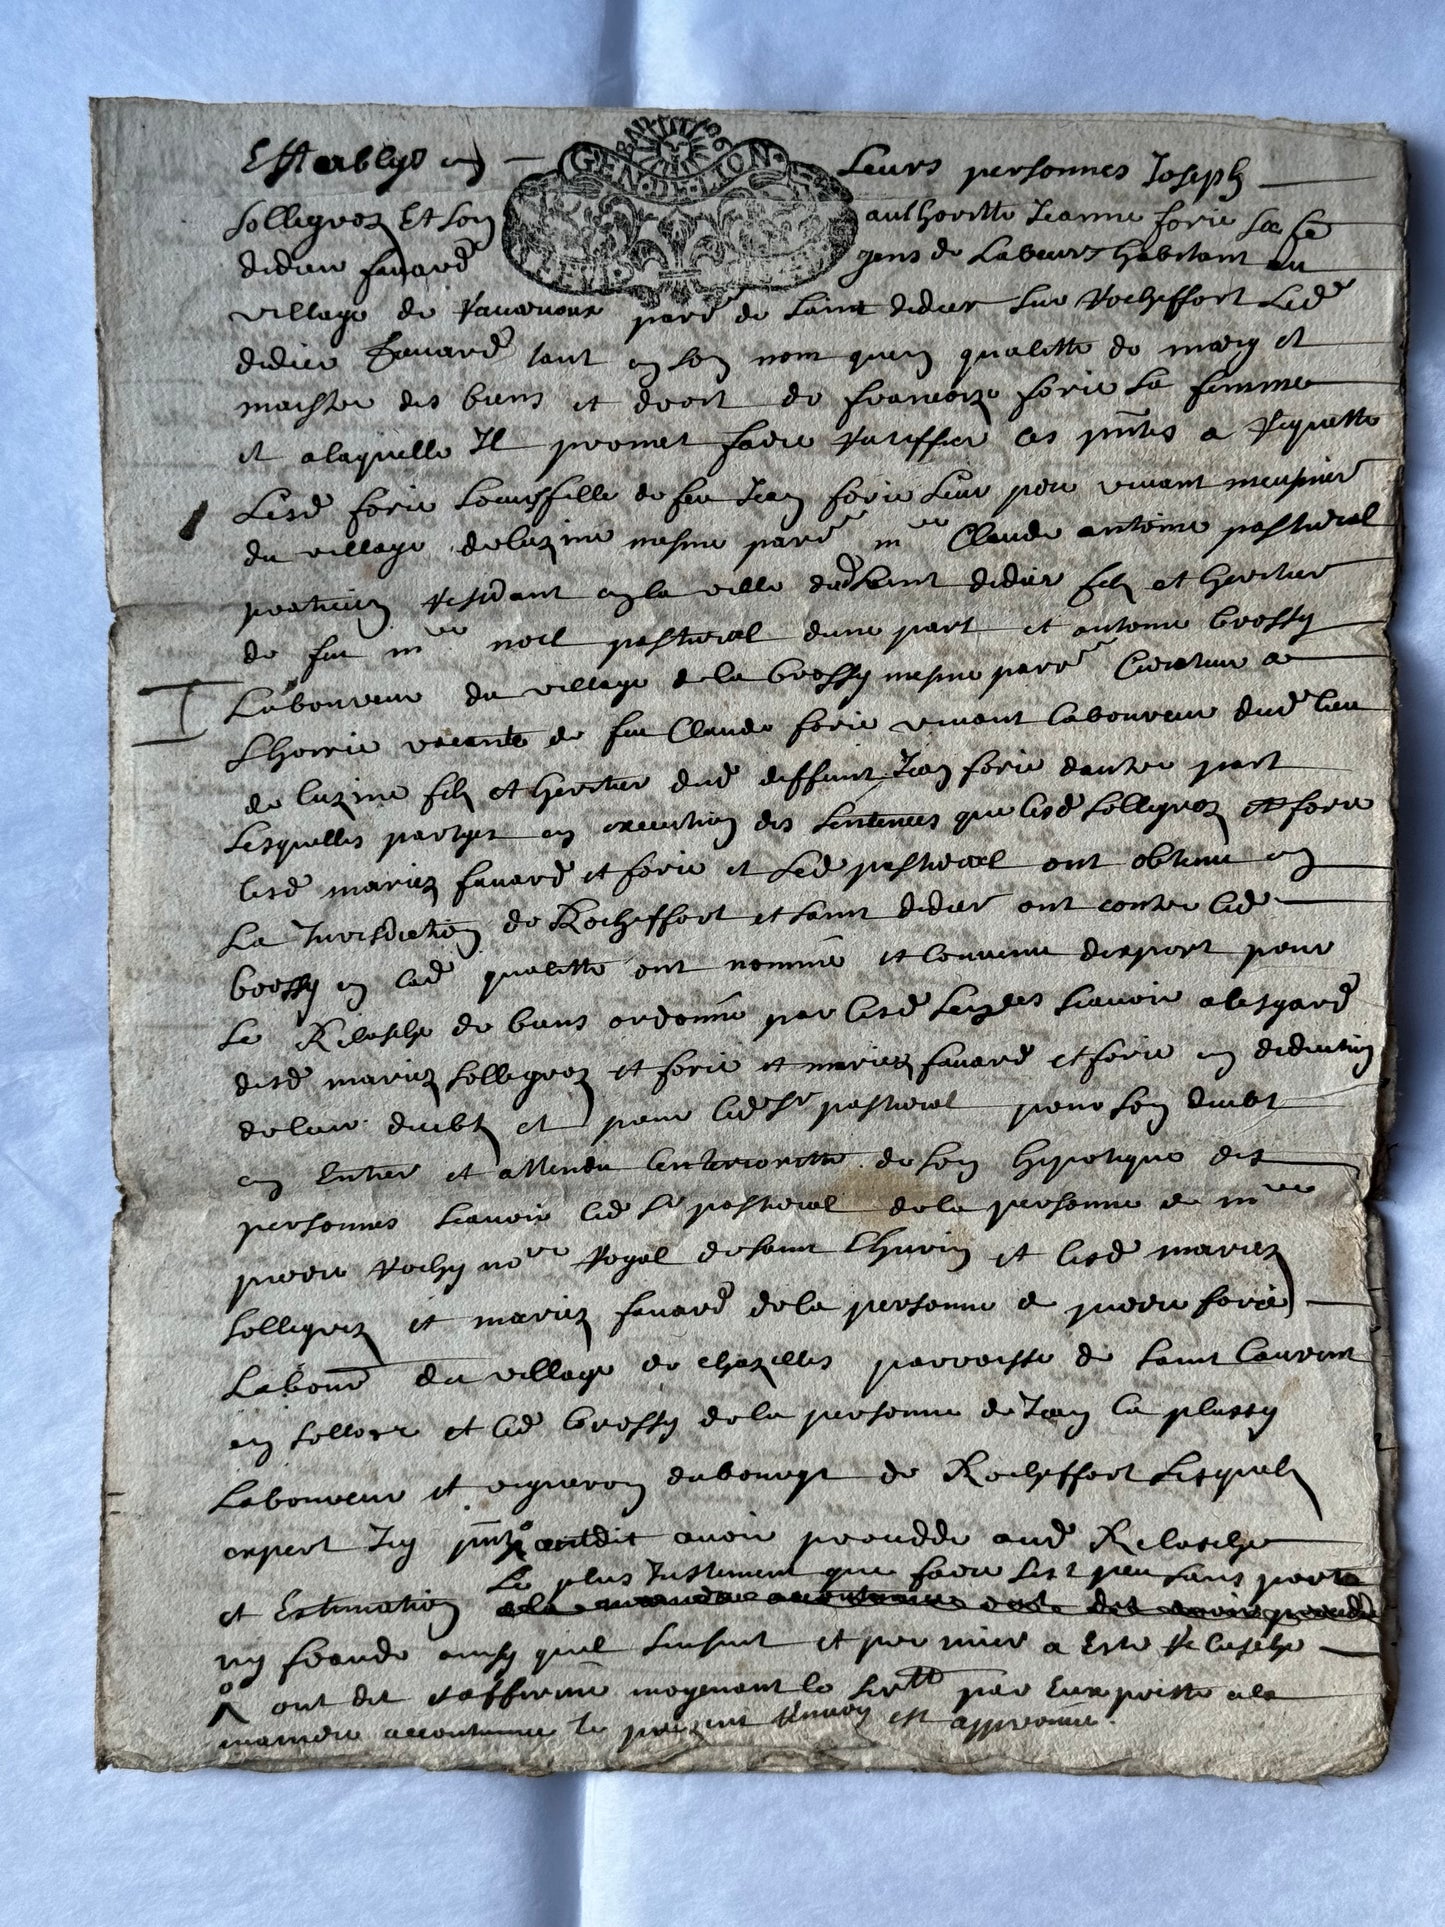 Establys en leurs personnes Joseph
sollegroz Et son authoritte Jeanne forie sa fe
didier fauard gens de Labeurs habitant au
village de parr de saint didier sur Rocheffort Led
didier fauard tant en son nom quen qualitte de mary et
maistre des biens et droit de francoize forie sa femme
et alaquelle Il promet faire Ratiffier ces pntes a Requette
Lesd forie soeurs fille de feu Jean forie Leur pere viuant meusnier
du village deluzine mesme parr me Claude antoine pastural
praticien Residant en la ville dud saint didier filz et heritier
de feu me noel pastural dune part et antoine brossy
Laboureur du village de la brossy mesme parr Curateur a
Lhoirie vacante de feu Claude forie viuant laboureur dud lieu
de luzine filz et heritier dud deffunt Jean forie dautre part
Lesquelles partyes en execution des sentences que lesd sollegroz et forie
lesd mariez fauard et forie et Led pastural ont obtenu en
La Jurisdiction de Rocheffort et saint didier ont contre led
brossy en lad qualitte ont nommé et conuenu dexpert pour
Le Relasche de biens ordonné par lesd sentences scauoir alesgard
desd mariez sollegroz et forie et mariez fauard et forie en deduction
deleur debtz et pour led sr pastural pour son debt
en Entier et attendu lanterioritté de son hypotique des
personnes scauoir led sr pastural dela personne de me
pierre Rochy nore Royal de saint thurin et lesd mariez
sollegroz et mariez fauard dela personne de pierre forie
Labour du village de chazelles parroisse de saint Laurent
en sollore et led brossy dela personne de Jean la plassy
Laboureur et vigneron dubourgt de Rocheffort Lesquelz
expert Icy pntz ont dit auoir proceddé aud Relasche
Le plus Justement que faire sest peu sans porte
et Estimation
ny fraude ainsy quil sensuit et premier a Esté Relasché
ont dit et affirmé moyenant le sermt par Eux presté ala
maniere accoutumée le present Renuoy est approuué.
GEN DE LION